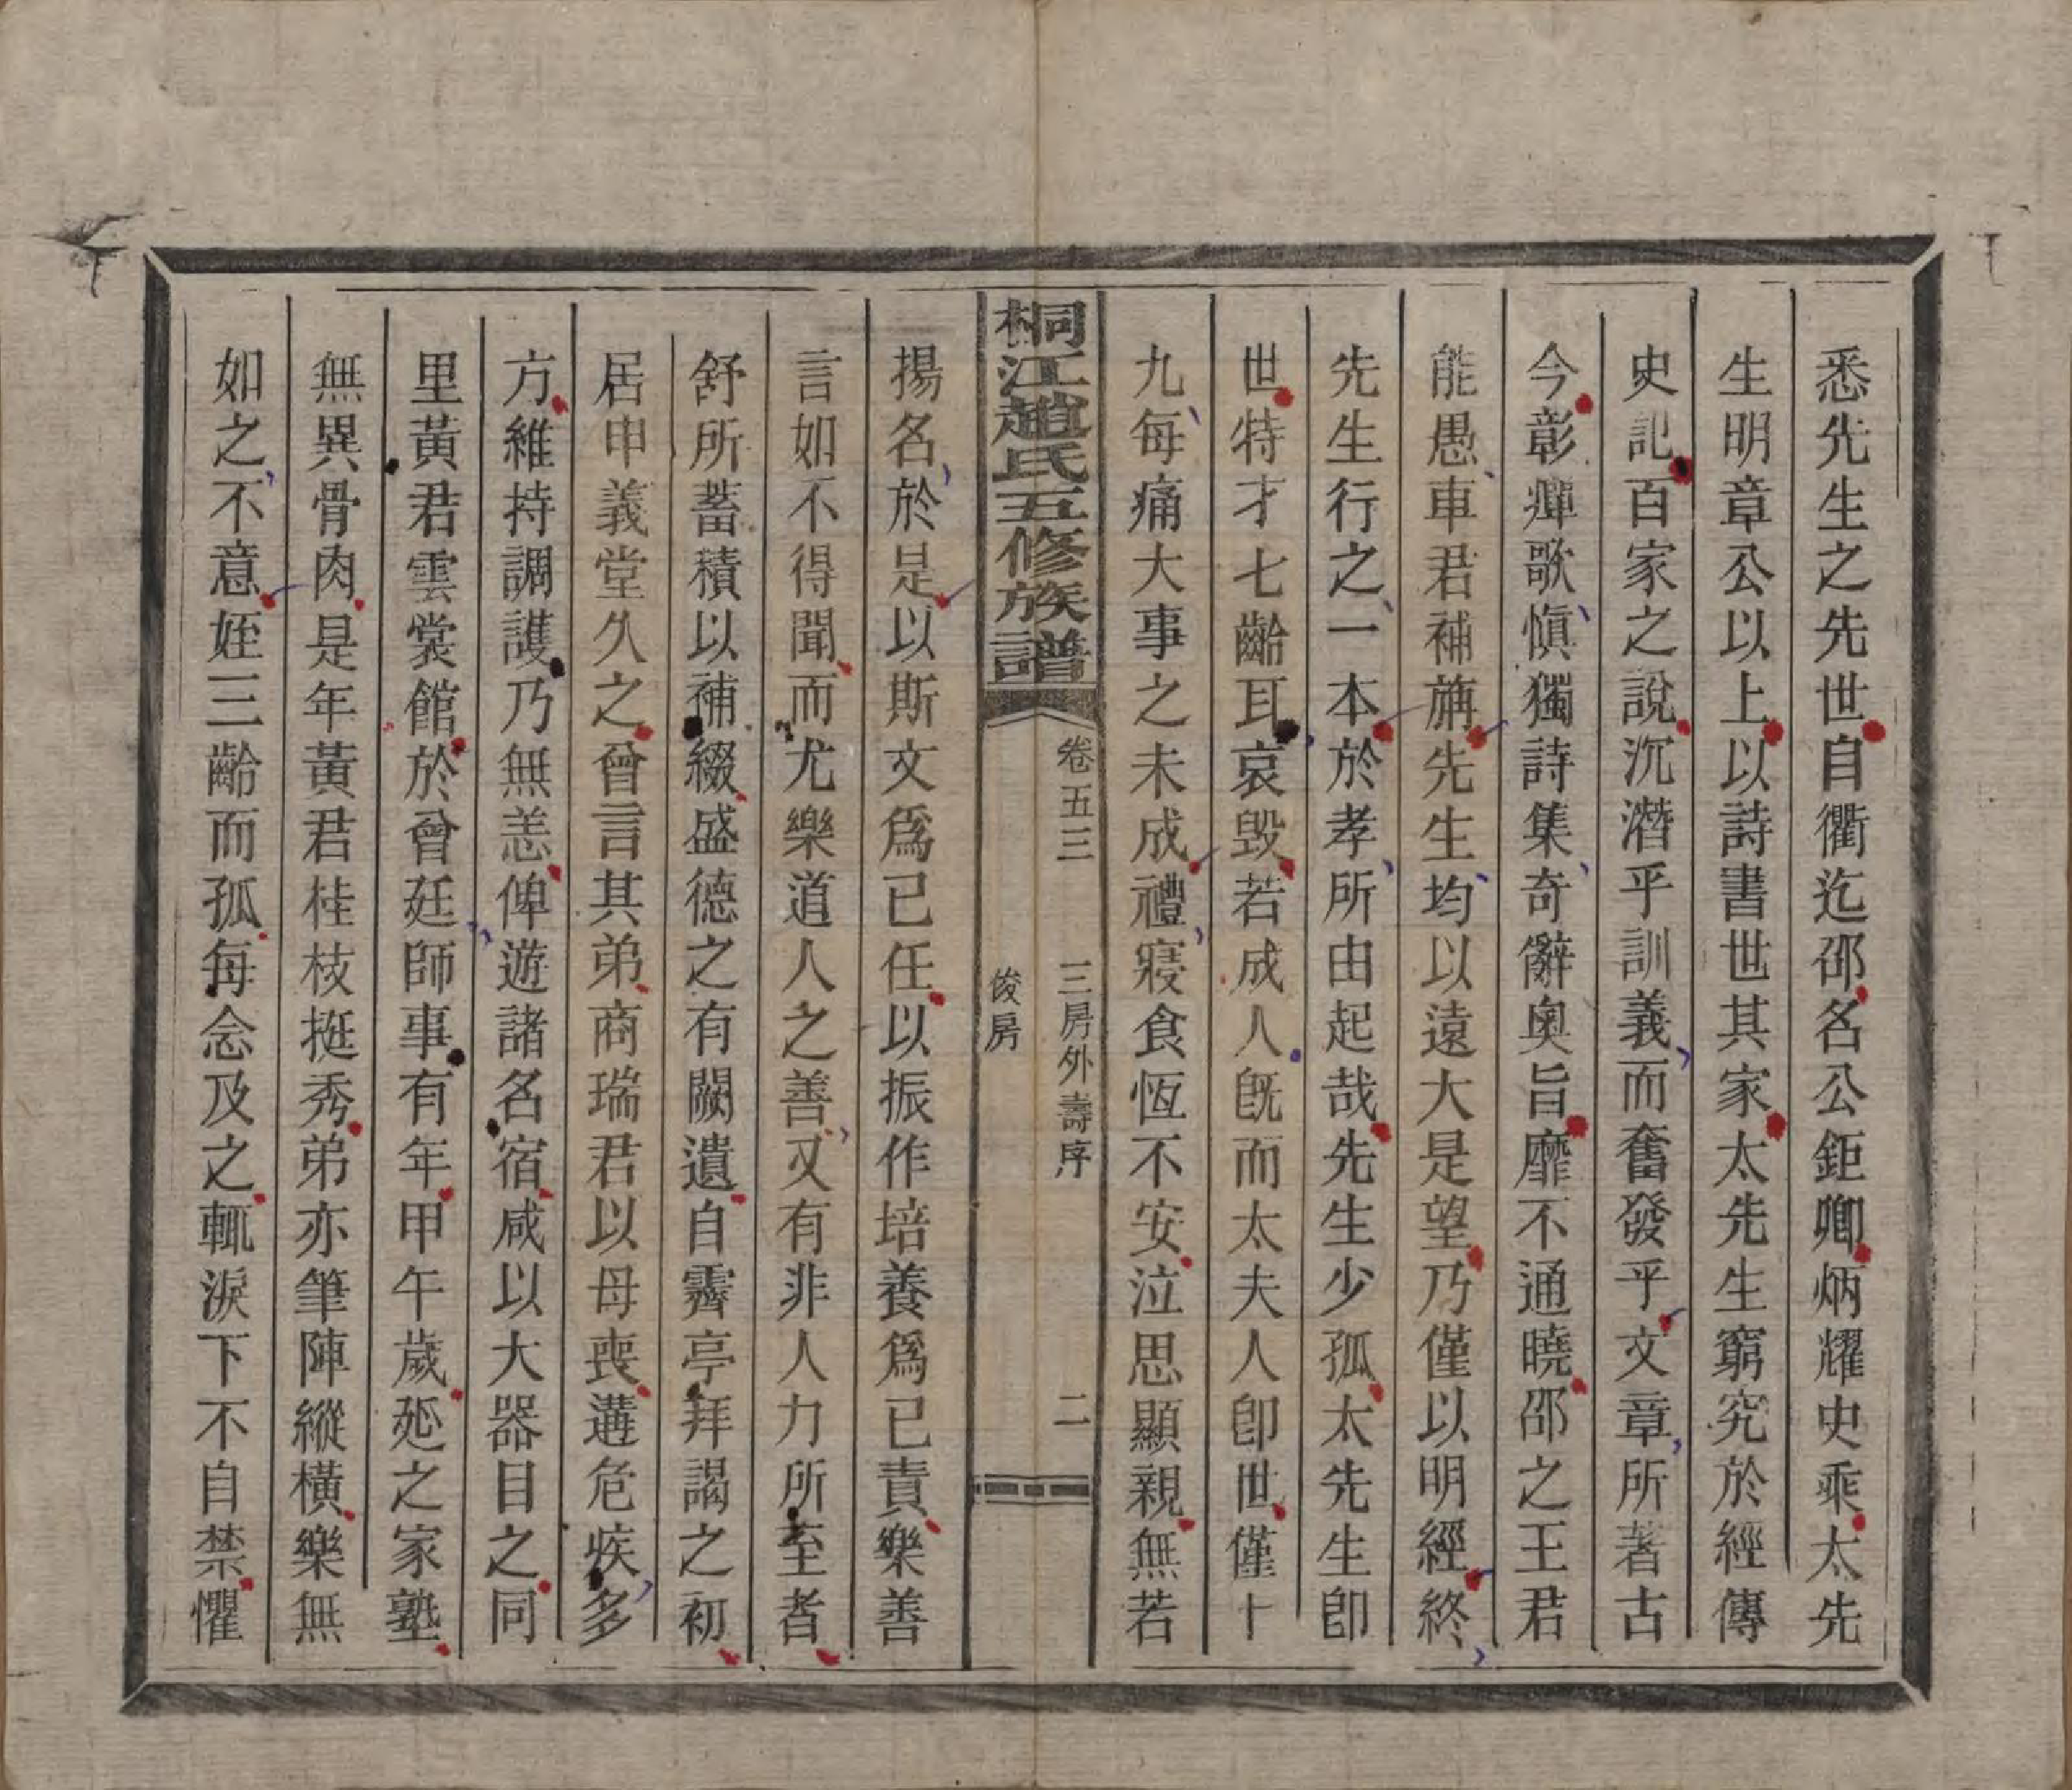 悉先生之先世自衢迄邵名公鉅卿炳耀史乘太先
生明章公以上以詩書世其家太先生窮究於經傳
史記百家之說沉潛乎訓義而奮發乎文章所著古
今彰癉歌愼獨詩集奇辭奧旨靡不通曉邵之王君
能愚車君補旃先生均以遠大是望乃僅以明經終
先生行之一本於孝所由起哉先生少孤太先生卽
世特才七齡耳哀毀若成人旣而太夫人卽世僅十
九每痛大事之未成禮寢食恆不安泣思顯親無若
桐江趙氏五修族譜
卷五三 三房外壽序 二
俊房
揚名於是以斯文爲已任以振作培養爲已責樂善
言如不得聞而尤樂道人之善又有非人力所至者
舒所蓄積以補綴盛德之有闕遺自霽亭拜謁之初
居申義堂久之曾言其弟商瑞君以母喪遘危疾多
方維持調護乃無恙俾遊諸名宿咸以大器目之同
里黃君雲裳館於曾廷師事有年甲午歲延之家塾
無異骨肉是年黃君桂枝挺秀弟亦筆陣縱橫樂無
如之不意姪三齡而孤每念及之輒淚下不自禁懼